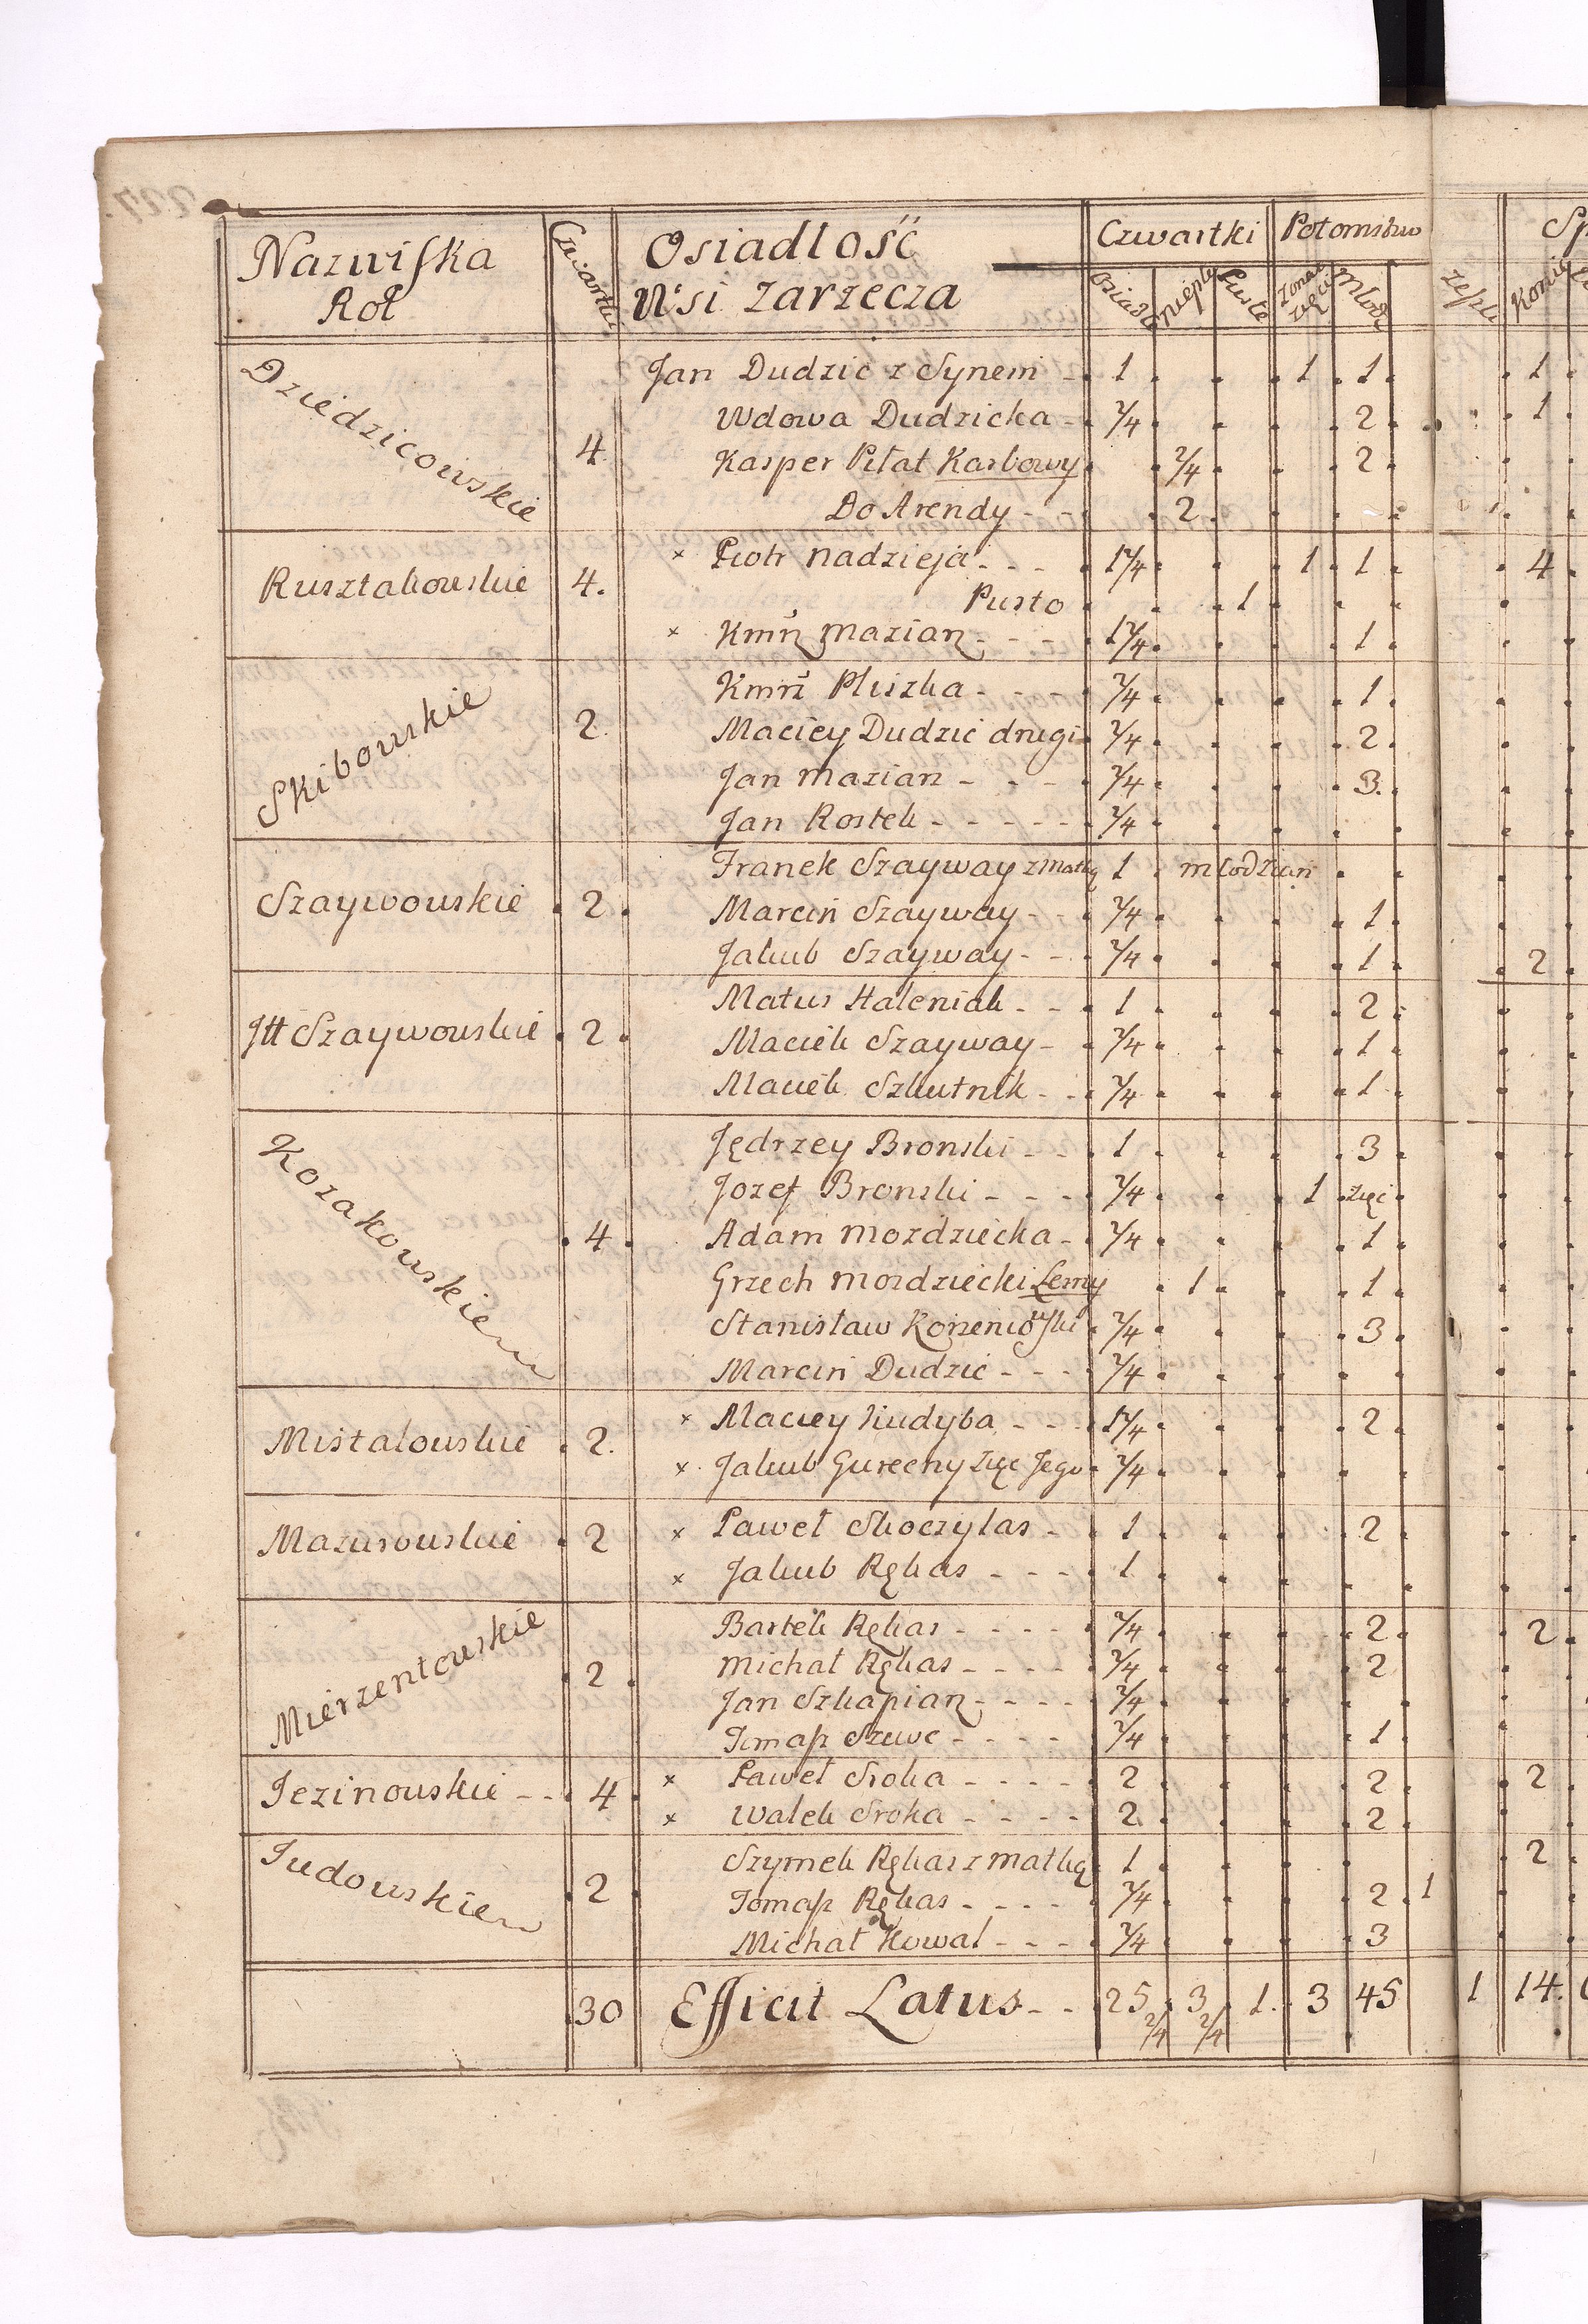 Nazwiska Rol | Czwartki | Osiadlość Wsi Zarzecza | Czwartki | Potomstwo
Osiadł | Niepły | Puste | Zona zięci | Młodz | Zespu | Konie
Dziedzicowskie 4
Jan Dudzic z Synem - 1 1 1 1
Wdowa Dudzicka - 2/4 2 1
Kasper Piłat Karbowy 2/4 2
Do Arendy - - 2
Rusztakowskie 4.
× Piotr Nadzieja - - - 1 2/4 1 1 4
Pusto 1
× Kmń Mazian - - - 1 2/4 1
Skibowskie 2.
Kmrź Pliszka - - - 2/4 1
Maciey Dudzic drugi 2/4 2
Jan Mazian - - - 2/4 3.
Jan Rostek - - - - - 2/4
Szaywowskie 2
Franek Szayway z Matką 1 młodzian
Marcin Szayway - - 2/4 1
Jakub Szayway - - 2/4 1 2
Jtt Szaywowskie 2
Matus Haleniak - - 1 2
Maciek Szayway - 2/4 1
Maciek Szkutnik - - 2/4 1
Kozakowskiem 4
Jędrzey Bronski - - 1 3
Jozef Bronski - - - 2/4 1 zięć
Adam Mozdziecka - 2/4 1
Grzech Mozdziecki Lemy 1 1
Stanisław Korzeniowski 2/4 3
Marcin Dudzic - - - 2/4
Mistalowskie 2.
× Maciey Kudyba - - - 1 2/4 2
× Jakub Gureczny Zięć Jego 2/4
Mazurowskie 2
× Paweł Skoczylas - 1 2
× Jakub Rękas - - - - 1
Mierzentowskie 2
Bartek Rękas - - - - 2/4 2 2
Michał Rękas - - - - 2/4 2
Jan Szkapian - - - - 2/4
Tomasz Szewc - - - - 2/4 1
Jezinowskie - - 4
× Paweł Sroka - - - - 2 2 2
× Walek Sroka - - - - 2 2
Judowskiem 2
Szymek Rękas z matką 1 2
Tomasz Rękas - - - - 2/4 2 1
Michał Kowal - - - 2/4 3
30 Efficit Latus - - 25 2/4 3 2/4 1. 3 45 1 14.